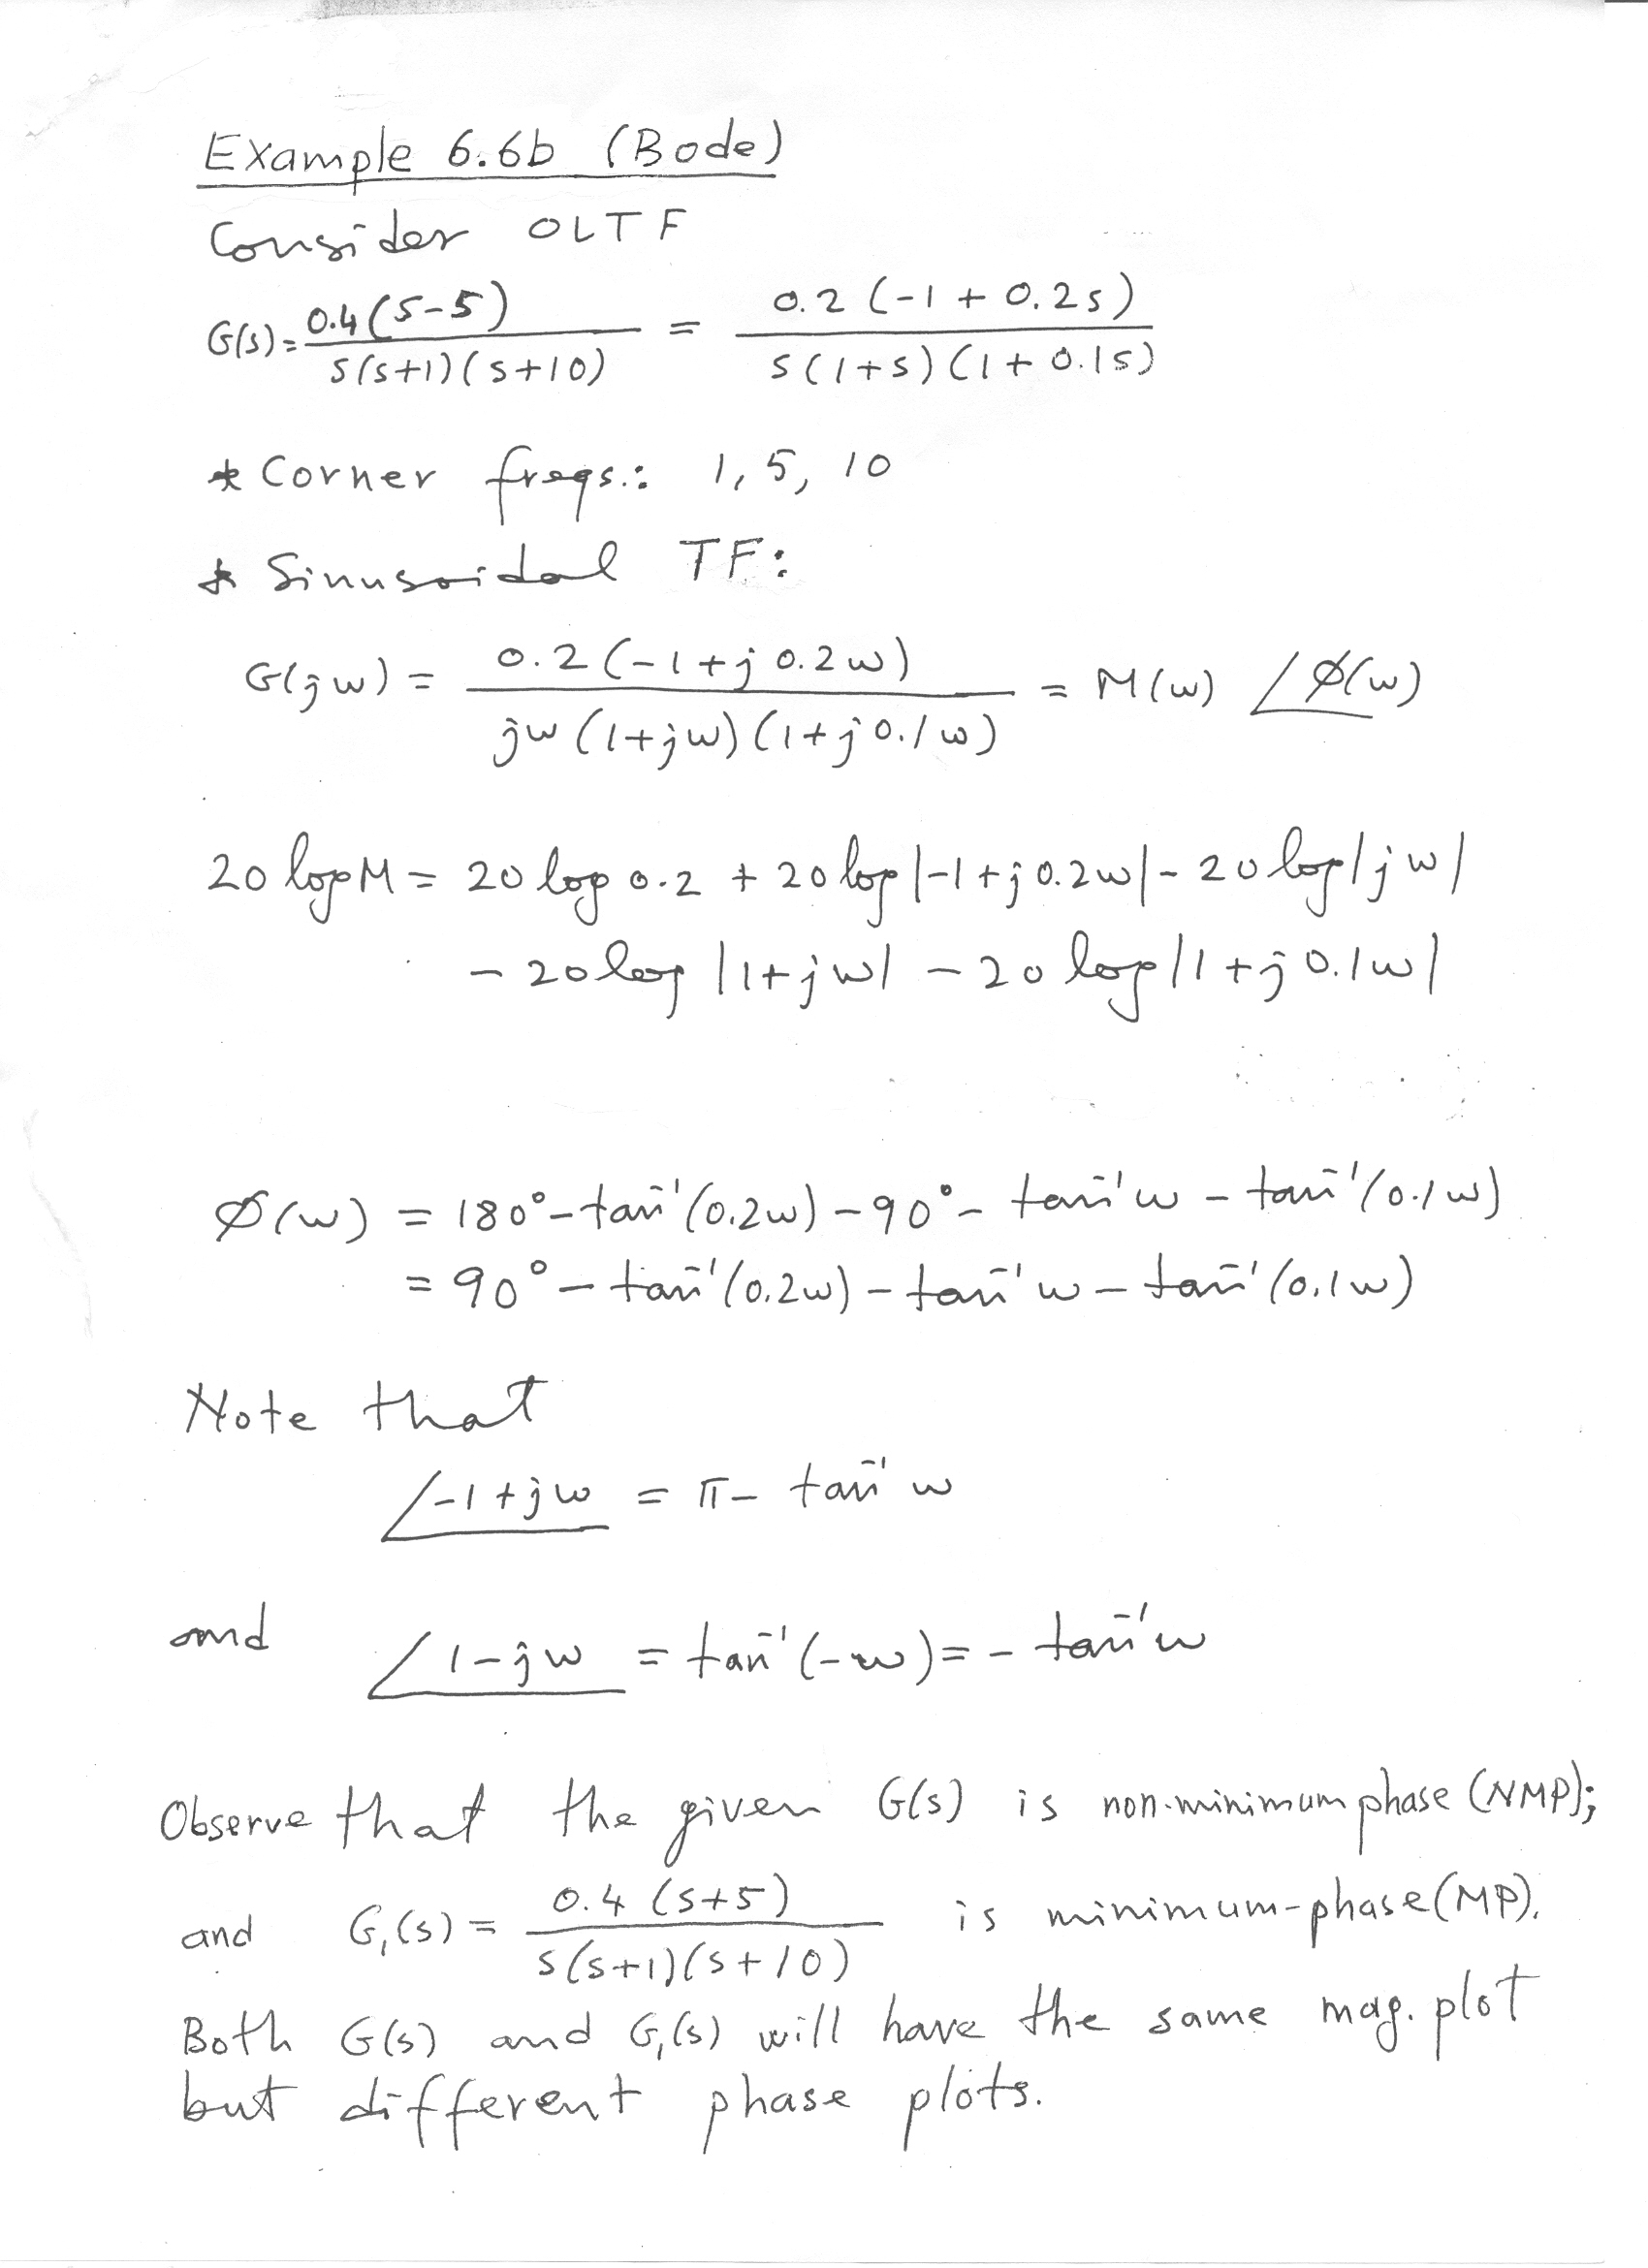 Example 6.6b (Bode)
Consider OLTF
G(s) = 0.4(s-5) / s(s+1)(s+10) = 0.2(-1 + 0.2s) / s(1+s)(1+0.1s)
* Corner freqs.: 1, 5, 10
* Sinusoidal TF:
G(jw) = 0.2(-1+j0.2w) / jw(1+jw)(1+j0.1w) = M(w) ∠ø(w)
20 log M = 20 log 0.2 + 20 log |-1+j0.2w| - 20 log |jw|
- 20 log |1+jw| - 20 log |1+j0.1w|
ø(w) = 180° - tan⁻¹(0.2w) - 90° - tan⁻¹w - tan⁻¹(0.1w)
= 90° - tan⁻¹(0.2w) - tan⁻¹w - tan⁻¹(0.1w)
Note that
∠-1+jw = π - tan⁻¹w
and ∠1-jw = tan⁻¹(-w) = - tan⁻¹w
Observe that the given G(s) is non-minimum phase (NMP);
and G₁(s) = 0.4(s+5) / s(s+1)(s+10) is minimum-phase (MP).
Both G(s) and G₁(s) will have the same mag. plot
but different phase plots.